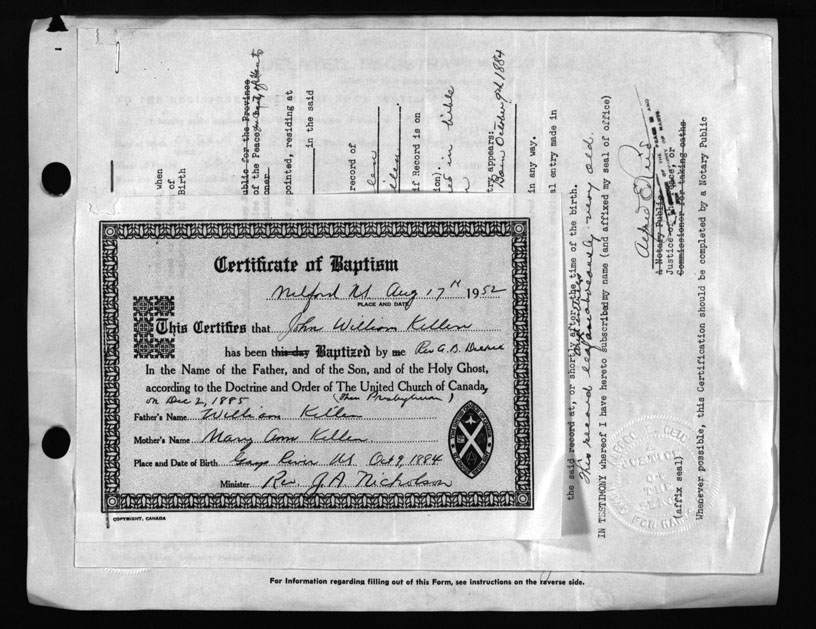 Certificate of Baptism
Milford NS Aug 17th 1952
PLACE AND DATE
This Certifies that John William Killen
has been this day Baptized by me Rev A. B.
In the Name of the Father, and of the Son, and of the Holy Ghost,
according to the Doctrine and Order of The United Church of Canada,
on Dec 2, 1885 (then Presbyterian)
Father's Name William Killen
Mother's Name Mary Ann Killen
Place and Date of Birth Gays River NS Oct 9, 1884
Minister Rev. J. A. Nicholson
COPYRIGHT, CANADA
when
of
Birth
ublic for the Province
of the Peace
oner
pointed, residing at
in the said
record of
if Record is on
ion):
in bible
try appears:
Born October 9th 1884
in any way.
al entry made in
the said record at, or shortly after the time of the birth.
This record is very old.
IN TESTIMONY whereof I have hereto subscribed my name (and affixed my seal of office)
A Notary Public
Justice of the Peace, or
Commissioner for taking oaths
(affix seal)
Whenever possible, this Certification should be completed by a Notary Public
For Information regarding filling out of this Form, see instructions on the reverse side.